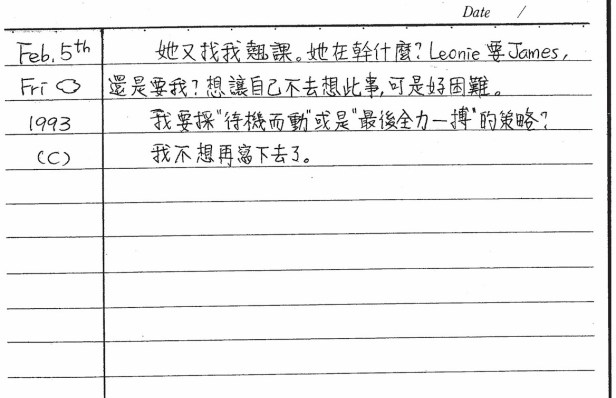 Date /
Feb. 5th 她又找我翹課。她在幹什麼? Leonie 要 James,
Fri 還是要我?想讓自己不去想此事,可是好困難。
1993 我要採"待機而動"或是"最後全力一搏"的策略?
(C) 我不想再窩下去了。